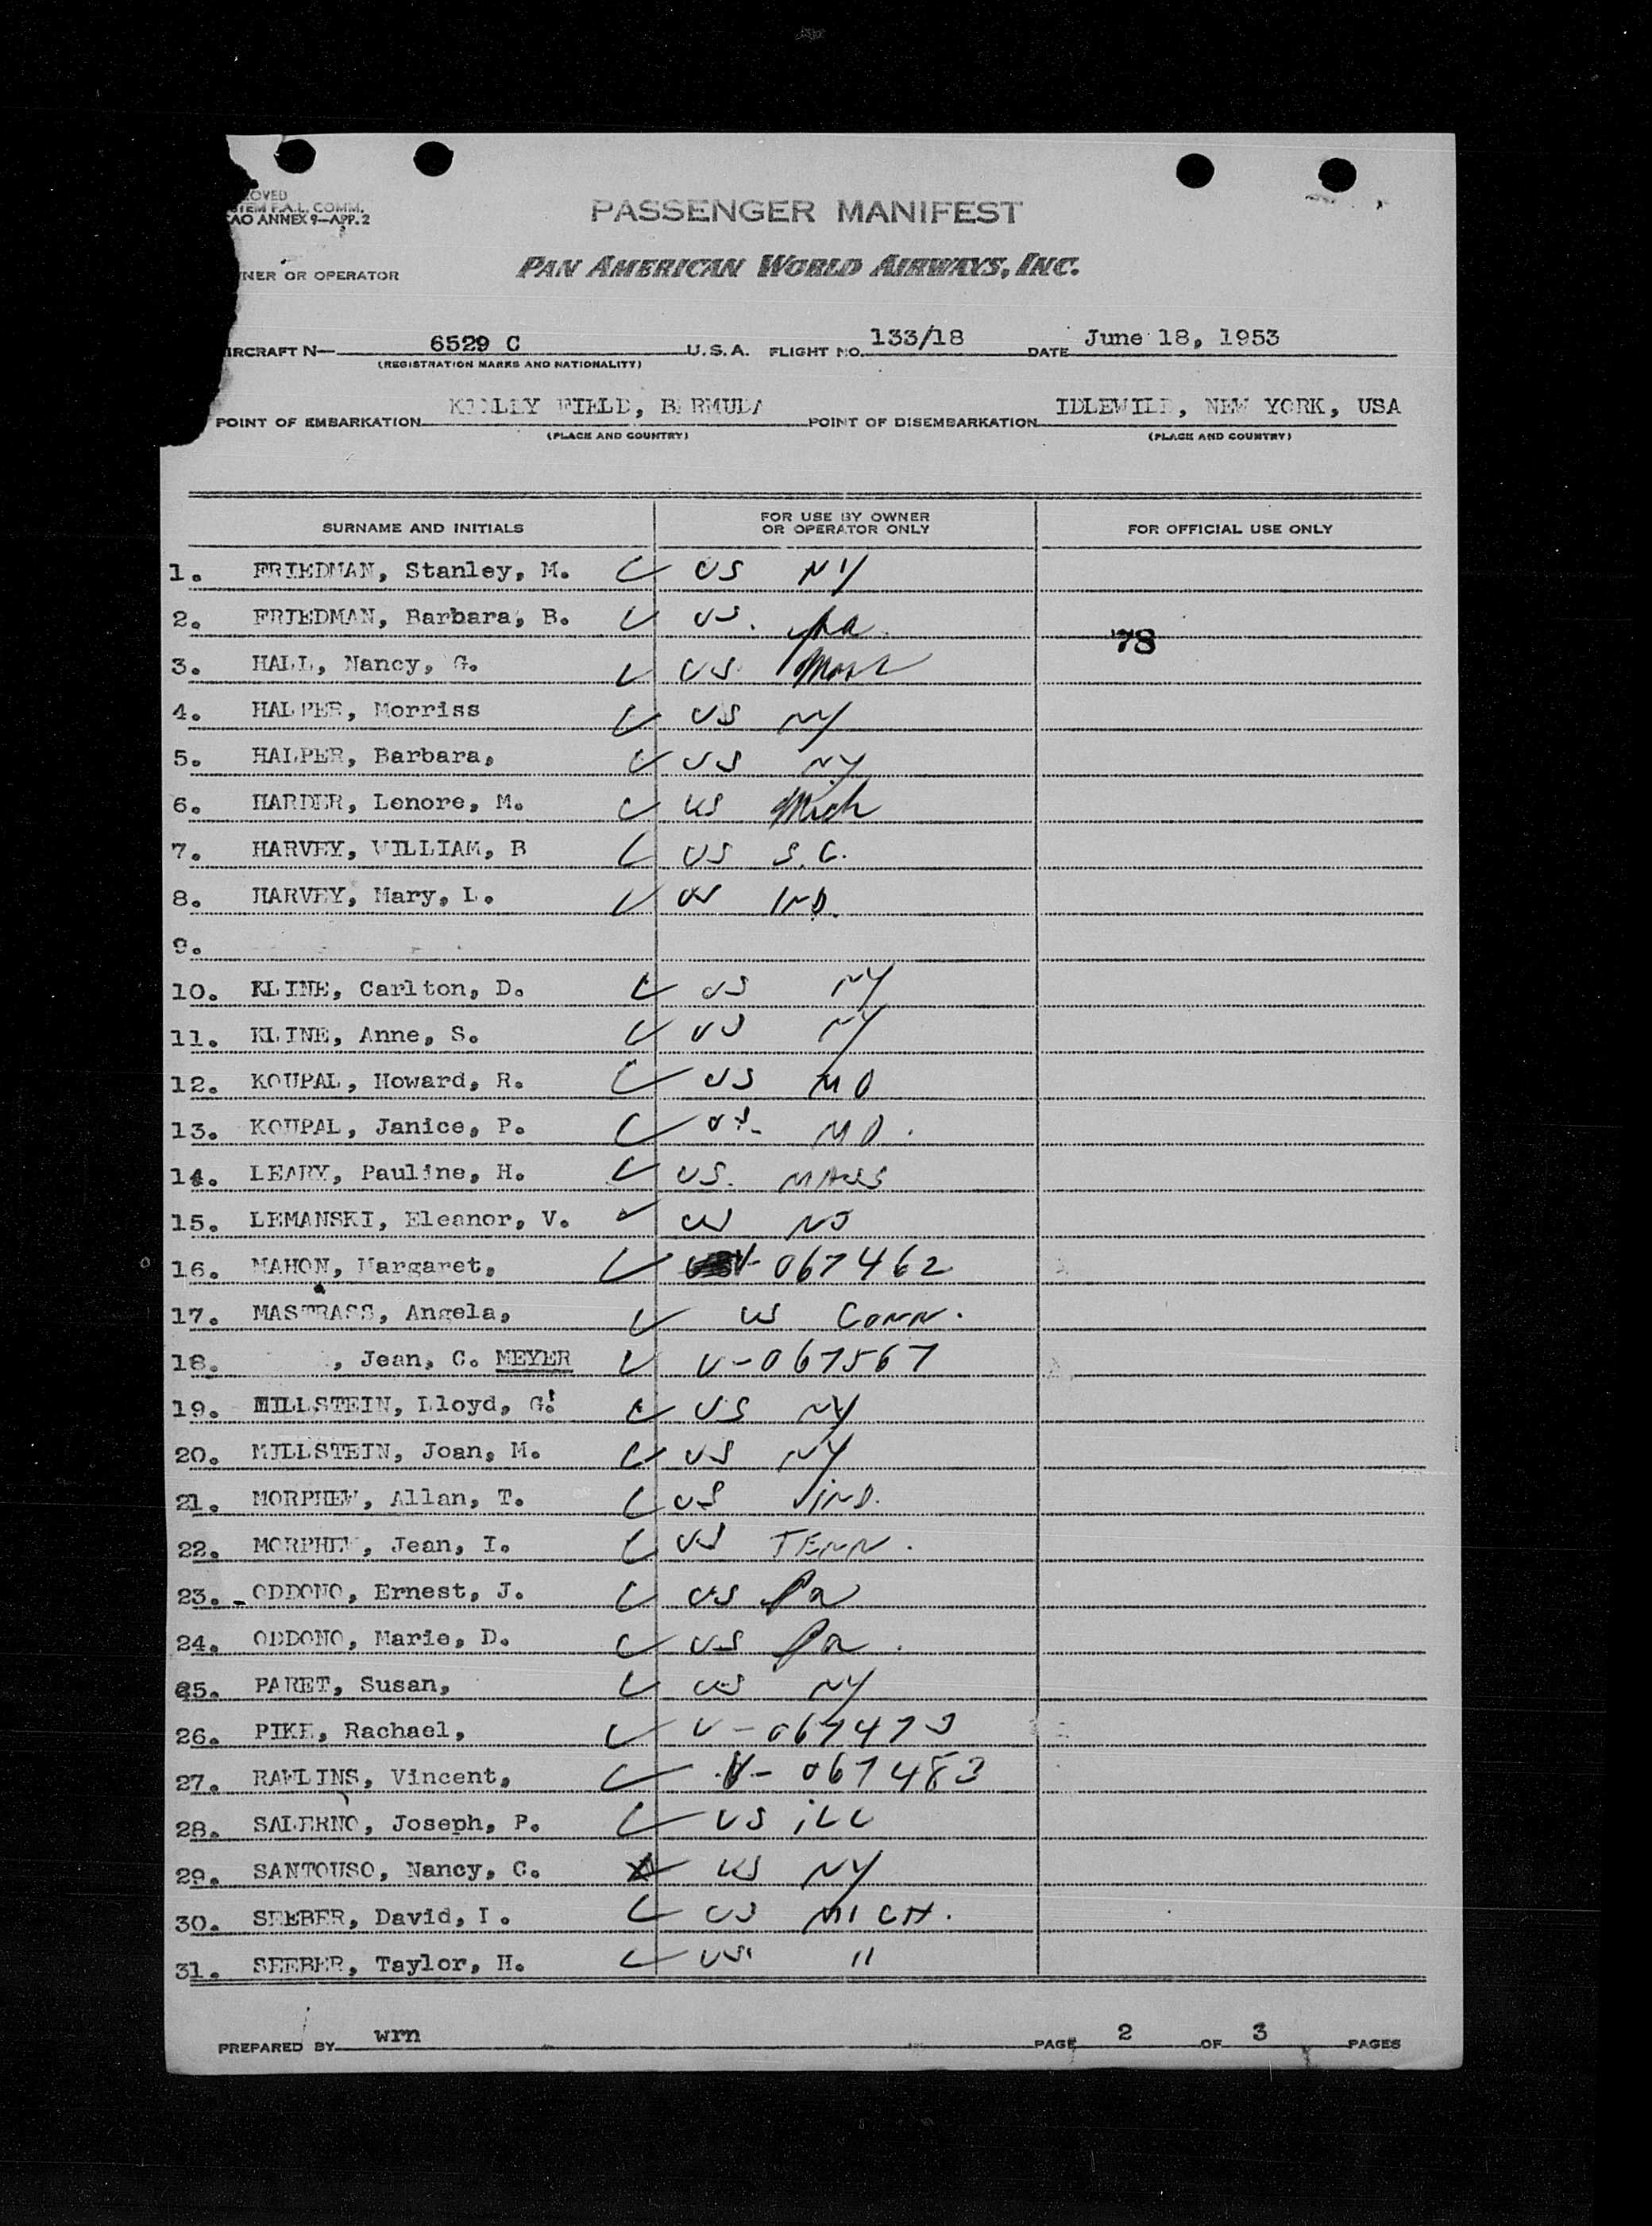 OVED
STEM F.A.L. COMM.
CAO ANNEX 9—APP. 2
PASSENGER MANIFEST
NER OR OPERATOR PAN AMERICAN WORLD AIRWAYS, INC.
IRCRAFT N— 6529 C U.S.A. FLIGHT NO. 133/18 DATE June 18, 1953
(REGISTRATION MARKS AND NATIONALITY)
POINT OF EMBARKATION KINDLEY FIELD, BERMUDA POINT OF DISEMBARKATION IDLEWILD, NEW YORK, USA
(PLACE AND COUNTRY) (PLACE AND COUNTRY)
SURNAME AND INITIALS FOR USE BY OWNER OR OPERATOR ONLY FOR OFFICIAL USE ONLY
1. FRIEDMAN, Stanley, M. US NY
2. FRIEDMAN, Barbara, B. US. Pa.
78
3. HALL, Nancy, G. US Mass
4. HALPER, Morriss US NY
5. HALPER, Barbara, US NY
6. HARDER, Lenore, M. US Mich
7. HARVEY, WILLIAM, B US S.C.
8. HARVEY, Mary, L. US IND.
9.
10. KLINE, Carlton, D. US NY
11. KLINE, Anne, S. US NY
12. KOUPAL, Howard, R. US MO
13. KOUPAL, Janice, P. US- MO.
14. LEARY, Pauline, H. US. MASS
15. LEMANSKI, Eleanor, V. US NJ
16. MAHON, Margaret, V-067462
17. MASTRASS, Angela, US CONN.
18. , Jean, C. MEYER V-067567
19. MILLSTEIN, Lloyd, G. US NY
20. MILLSTEIN, Joan, M. US NY
21. MORPHEW, Allan, T. US IND.
22. MORPHEW, Jean, I. US TENN.
23. ODDONO, Ernest, J. US Pa
24. ODDONO, Marie, D. US Pa.
25. PARET, Susan, US NY
26. PIKE, Rachael, V-067473
27. RAWLINS, Vincent, V-067483
28. SALERNO, Joseph, P. US ILL
29. SANTOUSO, Nancy, C. US NY
30. SEEBER, David, I. US MICH.
31. SEEBER, Taylor, H. US "
PREPARED BY wrn PAGE 2 OF 3 PAGES